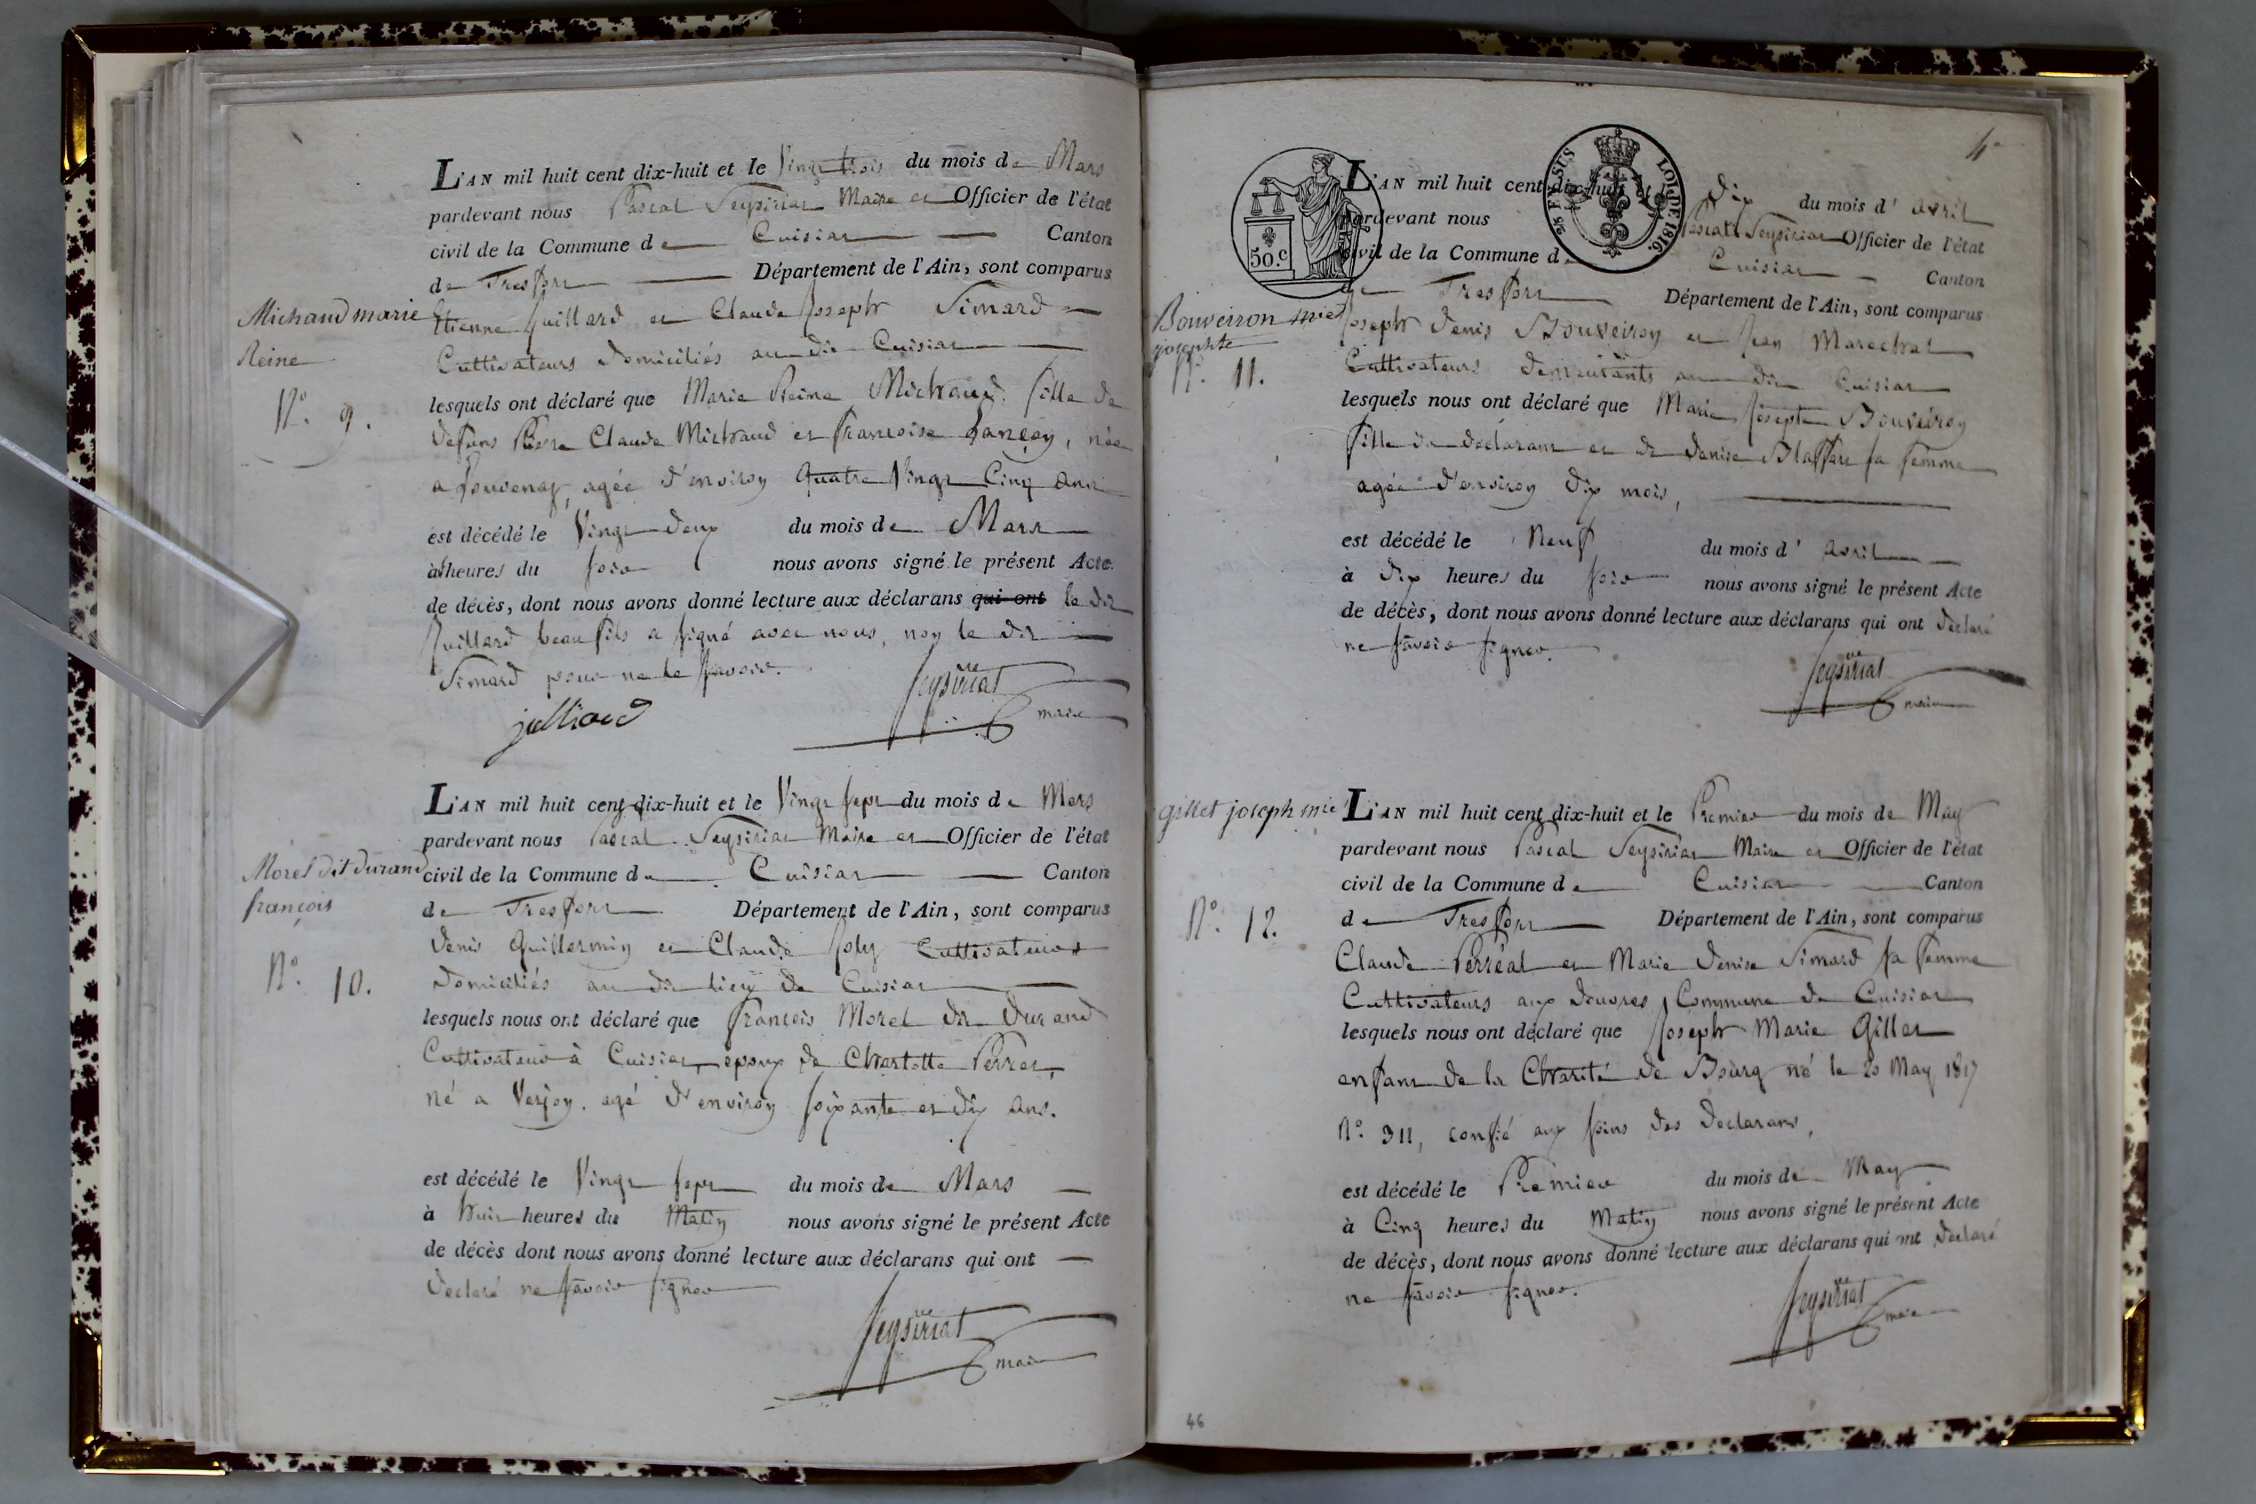 L'AN mil huit cent dix-huit et le Vingt trois du mois de Mars
pardevant nous Pascal Seysiriat Maire et Officier de l'état
civil de la Commune de Cuisiat Canton
de Treffort Département de l'Ain, sont comparus
Michaud marie
Reine
N.° 9.
Etienne Juillard et Claude Joseph Simard
Cultivateurs domiciliés au dit Cuisiat
lesquels ont déclaré que Marie Reine Michaud fille de
defunt Pierre Claude Michaud et francoise, née
a, agée d'environ Quatre Vingt Cinq ans
est décédé le Vingt deux du mois de Mars
à heures du soir nous avons signé le présent Acte
de décès, dont nous avons donné lecture aux déclarans qui ont le dit
Juillard beau fils a signé avec nous, non le dit
Simard pour ne le savoir.
Seysiriat
maire
julliard
L'AN mil huit cent dix-huit et le Vingt sept du mois de Mars
pardevant nous Pascal Seysiriat Maire et Officier de l'état
Morel dit durand
françois
N.° 10.
civil de la Commune de Cuisiat Canton
de Treffort Département de l'Ain, sont comparus
Denis Guillermin et Claude Joly Cultivateurs
Domiciliés au dit lieu de Cuisiat
lesquels nous ont déclaré que françois Morel dit Durand
Cultivateur à Cuisiat, epoux de Charlotte Perret,
né a Verjon. agé d'environ soixante et dix ans.
est décédé le Vingt sept du mois de Mars
à huit heures du Matin nous avons signé le présent Acte
de décès dont nous avons donné lecture aux déclarans qui ont
declaré ne savoir signer
Seysiriat
maire
4
50.c
25 EN SUS LOI DE 1816.
L'AN mil huit cent dix-huit et le Dix du mois d' avril
pardevant nous Pascal Seysiriat Officier de l'état
civil de la Commune de Cuisiat Canton
de Treffort Département de l'Ain, sont comparus
Bouveiron mie
josephte
N.° 11.
Joseph Denis Bouveiron et Jean Marechal
Cultivateurs demeurants au dit Cuisiat
lesquels nous ont déclaré que Marie Josephte Bouveiron
fille du déclarant et de Denise sa femme
agée d'environ dix mois,
est décédé le Neuf du mois d' avril
à dix heures du soir nous avons signé le présent Acte
de décès, dont nous avons donné lecture aux déclarans qui ont declaré
ne savoir signer.
Seysiriat
maire
gillet joseph mie
N.° 12.
L'AN mil huit cent dix-huit et le Premier du mois de May
pardevant nous Pascal Seysiriat Maire et Officier de l'état
civil de la Commune de Cuisiat Canton
de Treffort Département de l'Ain, sont comparus
Claude Perréal et Marie Denise Simard sa femme
Cultivateurs aux douvres Commune de Cuisiat
lesquels nous ont déclaré que Joseph Marie Gillet
enfant de la Charité de Bourg né le 20 May 1817
N.° 311, confié aux soins des declarans,
est décédé le Premier du mois de May
à Cinq heures du Matin nous avons signé le présent Acte
de décès, dont nous avons donné lecture aux déclarans qui ont declaré
ne savoir signer.
Seysiriat
maire
46